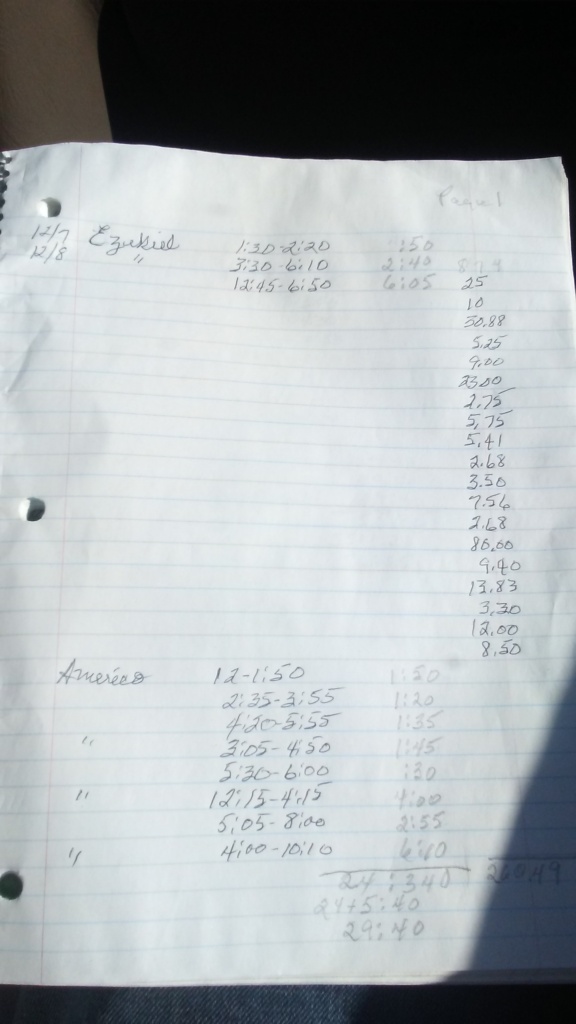 Page 1
12/7 Ezekiel 1:30-2:20 :50
12/8 " 3:30-6:10 2:40
12:45-6:50 6:05 25
10
50.88
5.25
9.00
23.00
2.75
5.75
5.41
2.68
3.50
7.56
2.68
80.00
9.40
13.83
3.30
12.00
8.50
Americo 12-1:50 1:50
2:35-3:55 1:20
4:20-5:55 1:35
" 3:05-4:50 1:45
5:30-6:00 :30
" 12:15-4:15 4:00
5:05-8:00 2:55
" 4:00-10:10 6:10
24:340 260.49
24+5:40
29:40